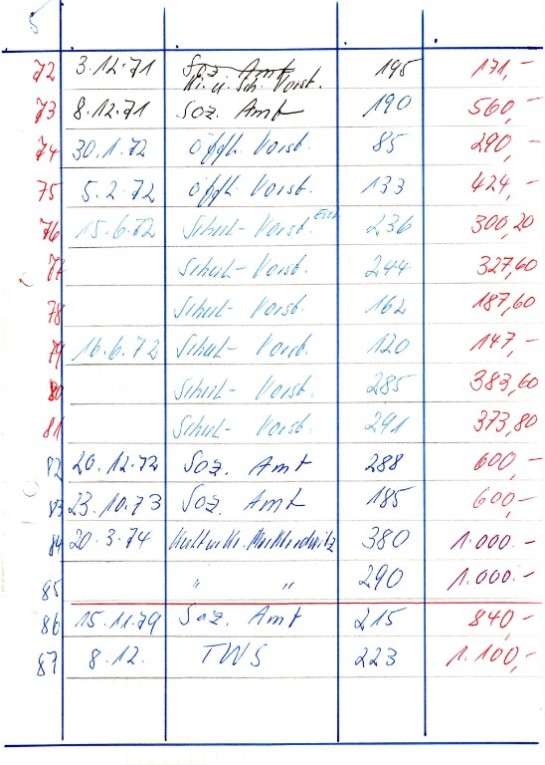 5
72 3.12.71 Soz. Amt 195 171,-
Ki. u. Sch. Vorst.
73 8.12.71 Soz. Amt 190 560,-
74 30.1.72 öffh. Vorst. 85 290,-
75 5.2.72 öffh. Vorst. 133 424,-
76 15.6.72 Schul-Vorst. 236 300,20
77 Schul-Vorst. 244 327,60
78 Schul-Vorst. 162 187,60
79 16.6.72 Schul-Vorst. 120 147,-
80 Schul-Vorst. 285 383,60
81 Schul-Vorst. 291 373,80
82 20.12.72 Soz. Amt 288 600,-
83 23.10.73 Soz. Amt 185 600,-
84 20.3.74 380 1.000.-
85 " " 290 1.000.-
86 15.11.79 Soz. Amt 215 840,-
87 8.12. TWS 223 1.100,-